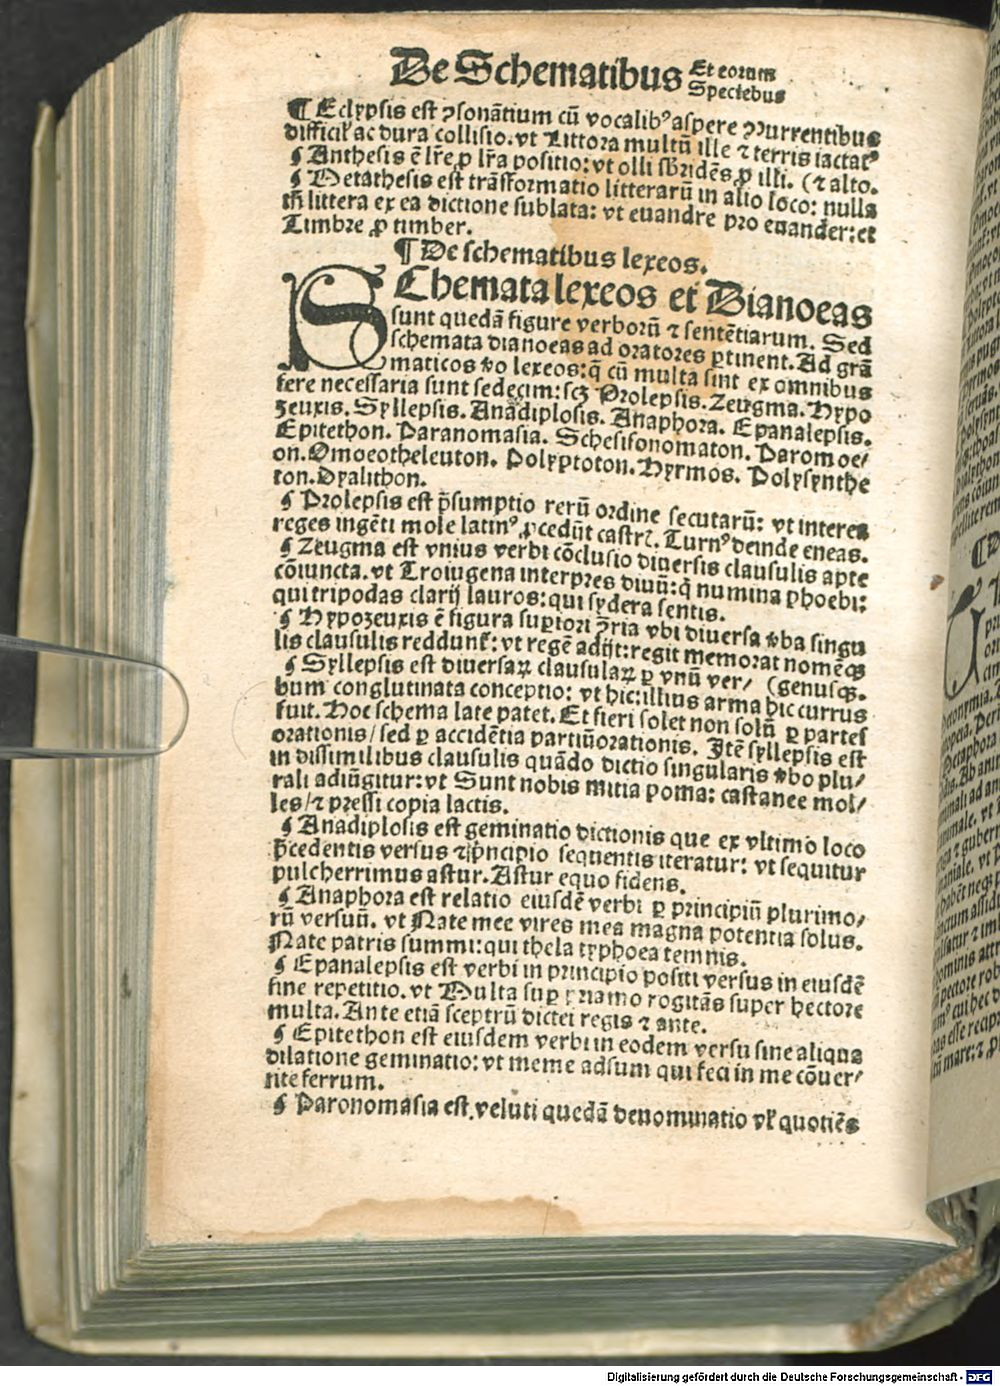 De Schematibus Et eorum
Speciebus
¶ Eclypsis est ↄsonãtium cũ vocalibꝰ aspere ↄↄurrentibus
difficilʼ ac dura collisio. vt Littora multũ ille ⁊ terris iactatꝰ
¶ Anthesis ẽ lr̃e ꝓ lr̃a positio: vt olli sb̃ridẽs ꝓ illi. (⁊ alto.
¶ Metathesis est trãsformatio litterarũ in alio loco: nulla
tñ littera ex ea dictione sublata: vt euandre pro euander: et
Timbre ꝓ timber.
¶ De schematibus lexeos.
SChemata lexeos et Dianoeas
sunt quedã figure verborũ ⁊ sentẽtiarum. Sed
schemata dianoeas ad oratores ꝑtinent. Ad grã
maticos ṽo lexeos: q̃ cũ multa sint ex omnibus
fere necessaria sunt sedecim: scꝫ Prolepsis. Zeugma. Hypo
zeuxis. Syllepsis. Anãdiplosis. Anaphora. Epanalepsis.
Epitethon. Paranomasia. Schesisonomaton. Paromoe/
on. Omoeotheleuton. Polyptoton. Hyrmos. Polysynthe
ton. Dyalithon.
¶ Prolepsis est p̃sumptio rerũ ordine secutarũ: vt interea
reges ingẽti mole latinꝰ ꝓcedũt castrꝭ. Turnꝰ deinde eneas.
¶ Zeugma est vnius verbi cõclusio diuersis clausulis apte
cõiuncta. vt Troiugena interpres diuũ: q̃ numina phoebi:
qui tripodas clarij lauros: qui sydera sentis.
¶ Hypozeuxis ẽ figura supiori ↄ̃ria vbi diuersa ṽba singu
lis clausulis reddunt̃: vt regẽ adijt: regit memorat nomẽqꝫ
¶ Syllepsis est diuersaꝝ clausulaꝝ ꝑ vnũ ver/ (genusqꝫ.
bum conglutinata conceptio: vt hic: illius arma hic currus
fuit. Hoc schema late patet. Et fieri solet non solũ ꝑ partes
orationis/ sed ꝑ accidẽtia partiũ orationis. Itẽ syllepsis est
in dissimilibus clausulis quãdo dictio singularis ṽbo plu/
rali adiũgitur: vt Sunt nobis mitia poma: castanee mol/
les/ ⁊ pressi copia lactis.
¶ Anadiplosis est geminatio dictionis que ex vltimo loco
p̃cedentis versus ⁊ p̃ncipio sequentis iteratur: vt sequitur
pulcherrimus astur. Astur equo fidens.
¶ Anaphora est relatio eiusdẽ verbi ꝑ principiũ plurimo/
rũ versuũ. vt Nate mee vires mea magna potentia solus.
Nate patris summi: qui thela typhoea temnis.
¶ Epanalepsis est verbi in principio positi versus in eiusdẽ
fine repetitio. vt Multa suꝑ priamo rogitãs super hectore
multa. Ante etiã sceptrũ dictei regis ⁊ ante.
¶ Epitethon est eiusdem verbi in eodem versu sine aliqua
dilatione geminatio: vt meme adsum qui feci in me cõuer/
tite ferrum.
¶ Paronomasia est. veluti quedã denominatio vl̃ quotiẽs
Digitalisierung gefördert durch die Deutsche Forschungsgemeinschaft - DFG